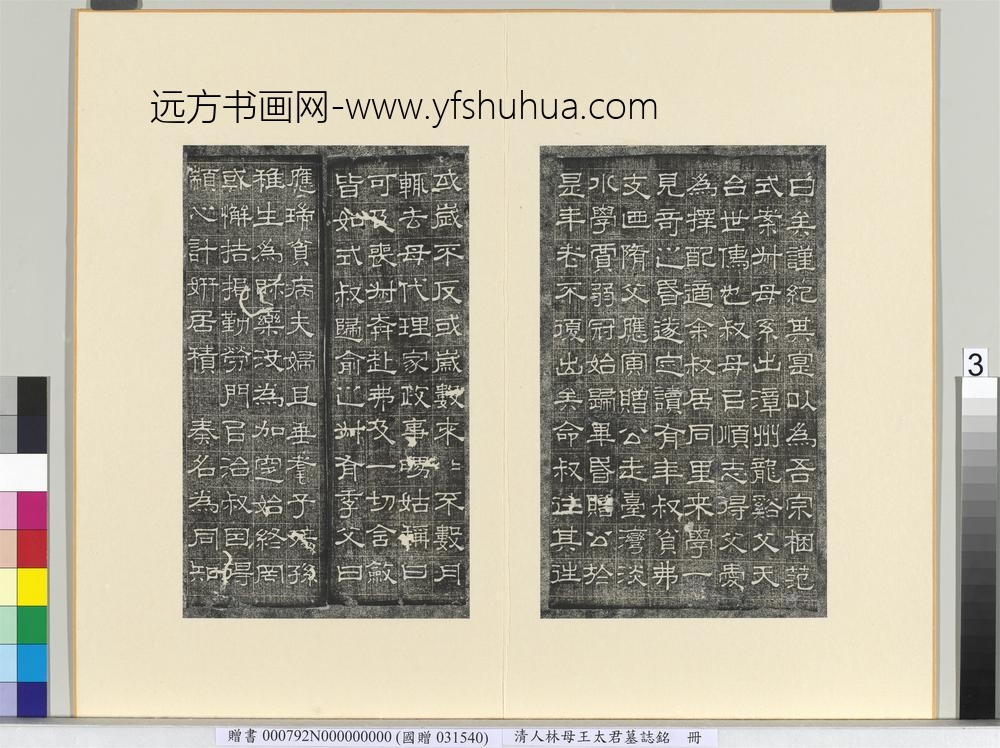 远方书画网-www.yfshuhua.com
曰矣謹紀其寔以為吾宗梱范
式案卅母系出漳州龍谿父天
台世儁也叔母巳順志得父愛
為擇配適余叔居同里来學一
見奇之昏遂定讀有年叔貧弗
支迺隋父應寅贈公走臺灣淡
水學賈弱冠始歸畢昏贈公於
是年老不復出矣命叔往其往
或歲不反或歲數來數月
輒去母代理家政事姑稱曰
可及喪卅奔赴弗及一切含斂
皆如式叔隔俞之卅有季父曰
應瑞貧病夫婦且垂耄子孫
稚生為財藥汝為加空始終罔
或懈拮据勤勞門巨治叔因得
顓心計姸居積秦名為同知
3
贈書 000792N000000000 (國贈 031540) 清人林母王太君墓誌銘 冊